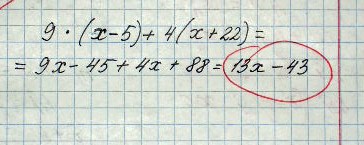 9 · (x-5) + 4(x+22) =
= 9x - 45 + 4x + 88 = 13x - 43